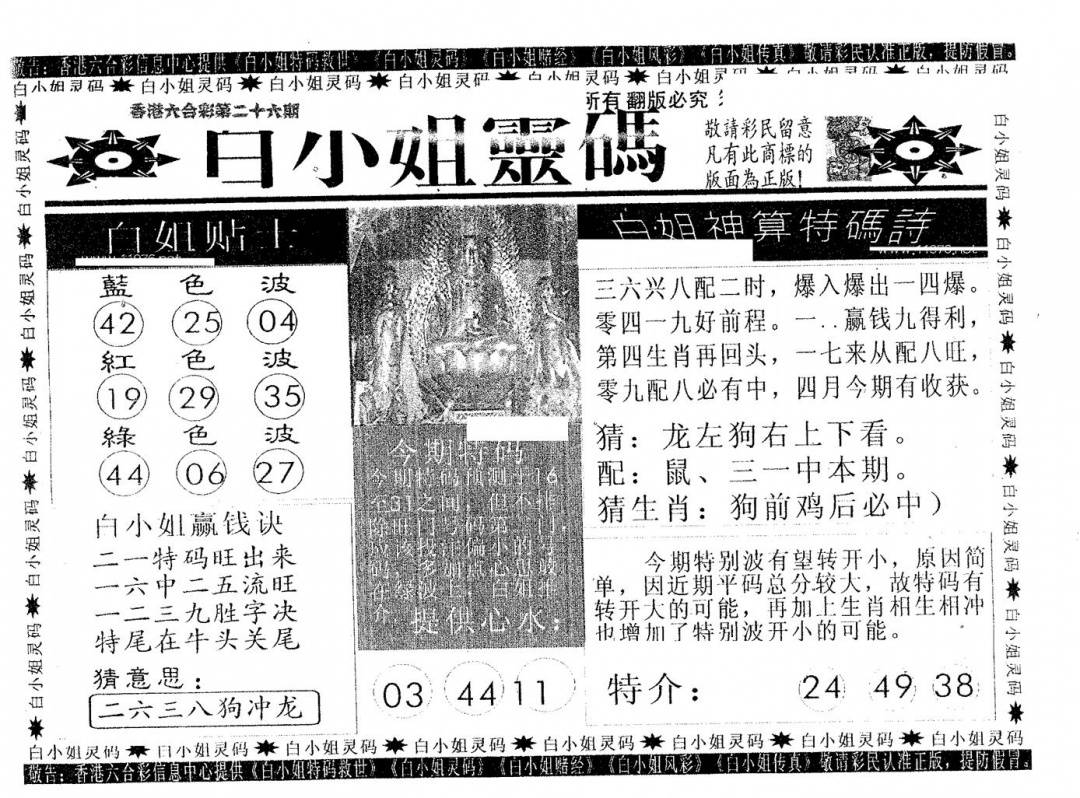 敬告：香港六合彩信息中心提供《白小姐特码救世》《白小姐灵码》《白小姐赌经》《白小姐风彩》《白小姐传真》敬请彩民认准正版，提防假冒。
白小姐灵码 白小姐灵码 白小姐灵码 白小姐灵码 白小姐灵码
所有 翻版必究
香港六合彩第二十六期
白小姐靈碼
敬請彩民留意
凡有此商標的
版面為正版!
白姐贴士
藍 色 波
42 25 04
紅 色 波
19 29 35
綠 色 波
44 06 27
白小姐赢钱诀
二一特码旺出来
一六中二五流旺
一二三九胜字决
特尾在牛头关尾
猜意思：
二六三八狗冲龙
今期特码
提供心水：
03 44 11
白姐神算特碼詩
三六兴八配二时，爆入爆出一四爆。
零四一九好前程。一..赢钱九得利，
第四生肖再回头，一七来从配八旺，
零九配八必有中，四月今期有收获。
猜：龙左狗右上下看。
配：鼠、三一中本期。
猜生肖：狗前鸡后必中）
今期特别波有望转开小，原因简
单，因近期平码总分较大，故特码有
转开大的可能，再加上生肖相生相冲
也增加了特别波开小的可能。
特介： 24 49 38
白小姐灵码 白小姐灵码 白小姐灵码 白小姐灵码 白小姐灵码 白小姐灵码 白小姐灵码 白小姐灵码
敬告：香港六合彩信息中心提供《白小姐特码救世》《白小姐灵码》《白小姐赌经》《白小姐风彩》《白小姐传真》敬请彩民认准正版，提防假冒。